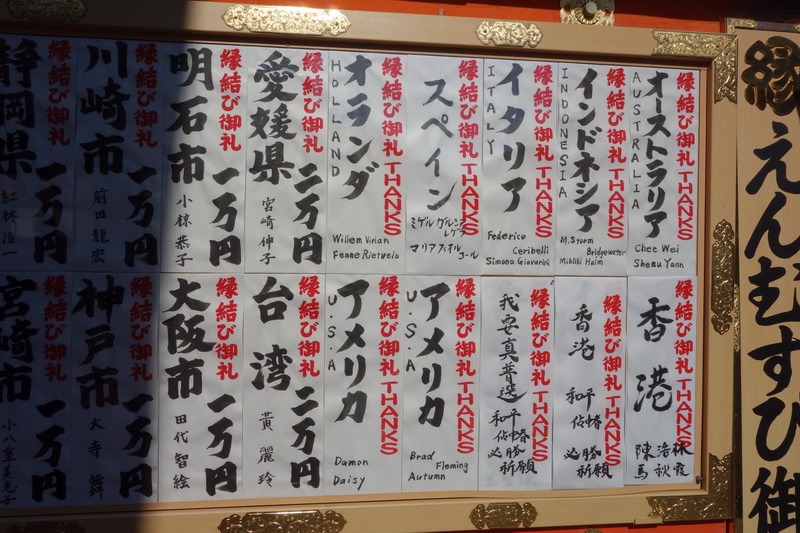 縁えんむすび御
縁結び御礼 THANKS
オーストラリア
AUSTRALIA
Chee Wei
Sheau Yann
縁結び御礼 THANKS
インドネシア
INDONESIA
M.Sturm
Bridgewater
Mihiki Haim
縁結び御礼 THANKS
イタリア
ITALY
Federico
Ceribelli
Simona Giavarini
縁結び御礼 THANKS
スペイン
マリア
縁結び御礼 THANKS
オランダ
HOLLAND
Willem Virian
Femme Rietveld
縁結び御礼
愛媛県
二万円
宮崎伸子
縁結び御礼
明石市
一万円
小椋恭子
縁結び御礼
川崎市
一万円
前田龍宏
縁結び御礼
静岡県
一万円
紅林浩一
縁結び御礼 THANKS
香港
陳浩林
馬秋霞
縁結び御礼 THANKS
香港
和平佔中者
必勝祈願
縁結び御礼 THANKS
我要真普選
和平佔中者
必勝祈願
縁結び御礼 THANKS
アメリカ
U.S.A
Brad
Fleming
Autumn
縁結び御礼 THANKS
アメリカ
U.S.A
Damon
Daisy
縁結び御礼
台湾
二万円
黃麗玲
縁結び御礼
大阪市
一万円
田代智絵
縁結び御礼
神戸市
一万円
大寺舞
縁結び御礼
宮崎市
一万円
小八重美恵子